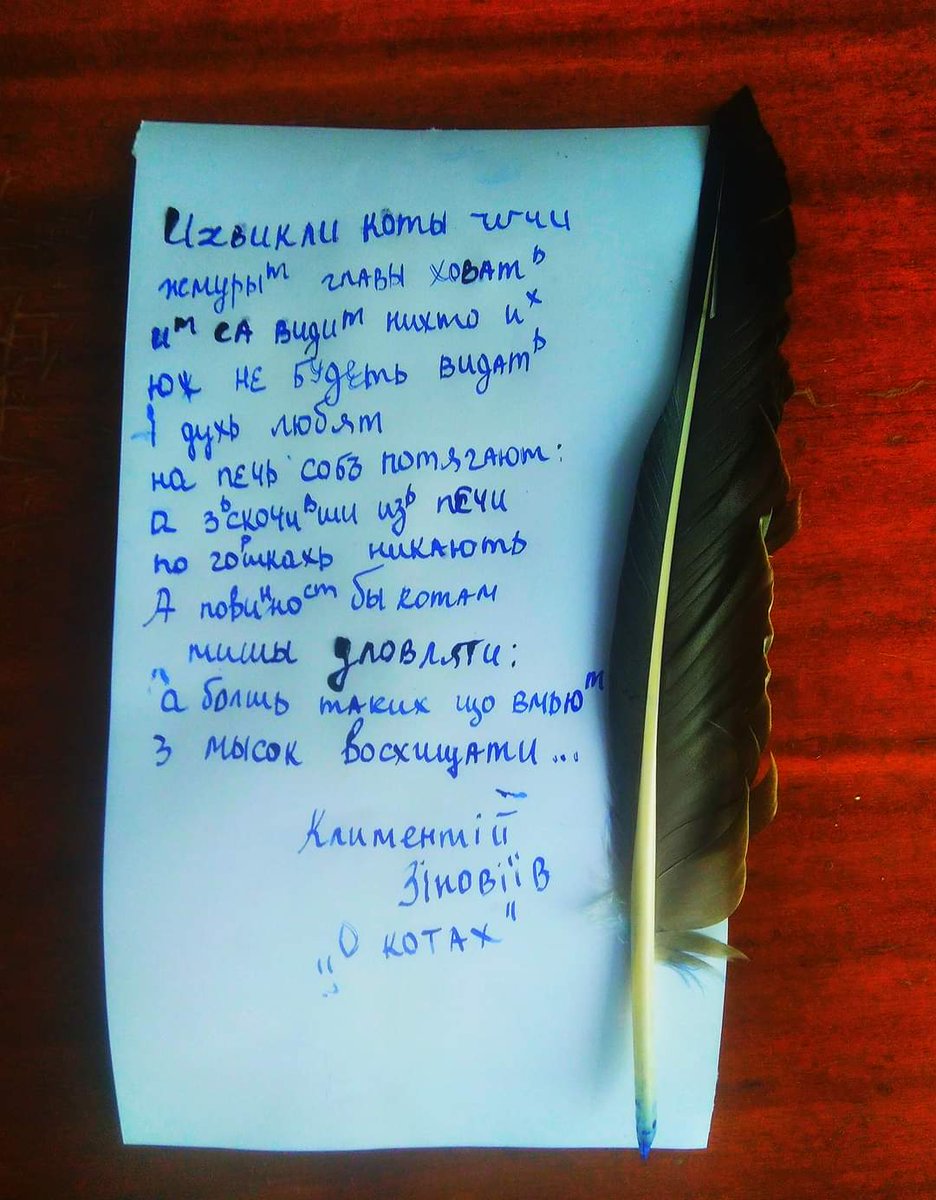 Ихвикли коты ѡчи
жмурыᵐ главы ховатᵇ
иᵐ сѧ видиᵐ нихто иˣ
юж не будеть видатᵇ
І духь любят
на печь собѣ потягают:
а зᵇскочиᵇши изᵇ печи
по гоᵖшкахь никають
А повиⁿноᶜᵐ бы котам
мишы уловляти:
а болшь таких що вмѣюᵐ
з мысок восхищати...
Климентій
Зіновіїв
„О котах"